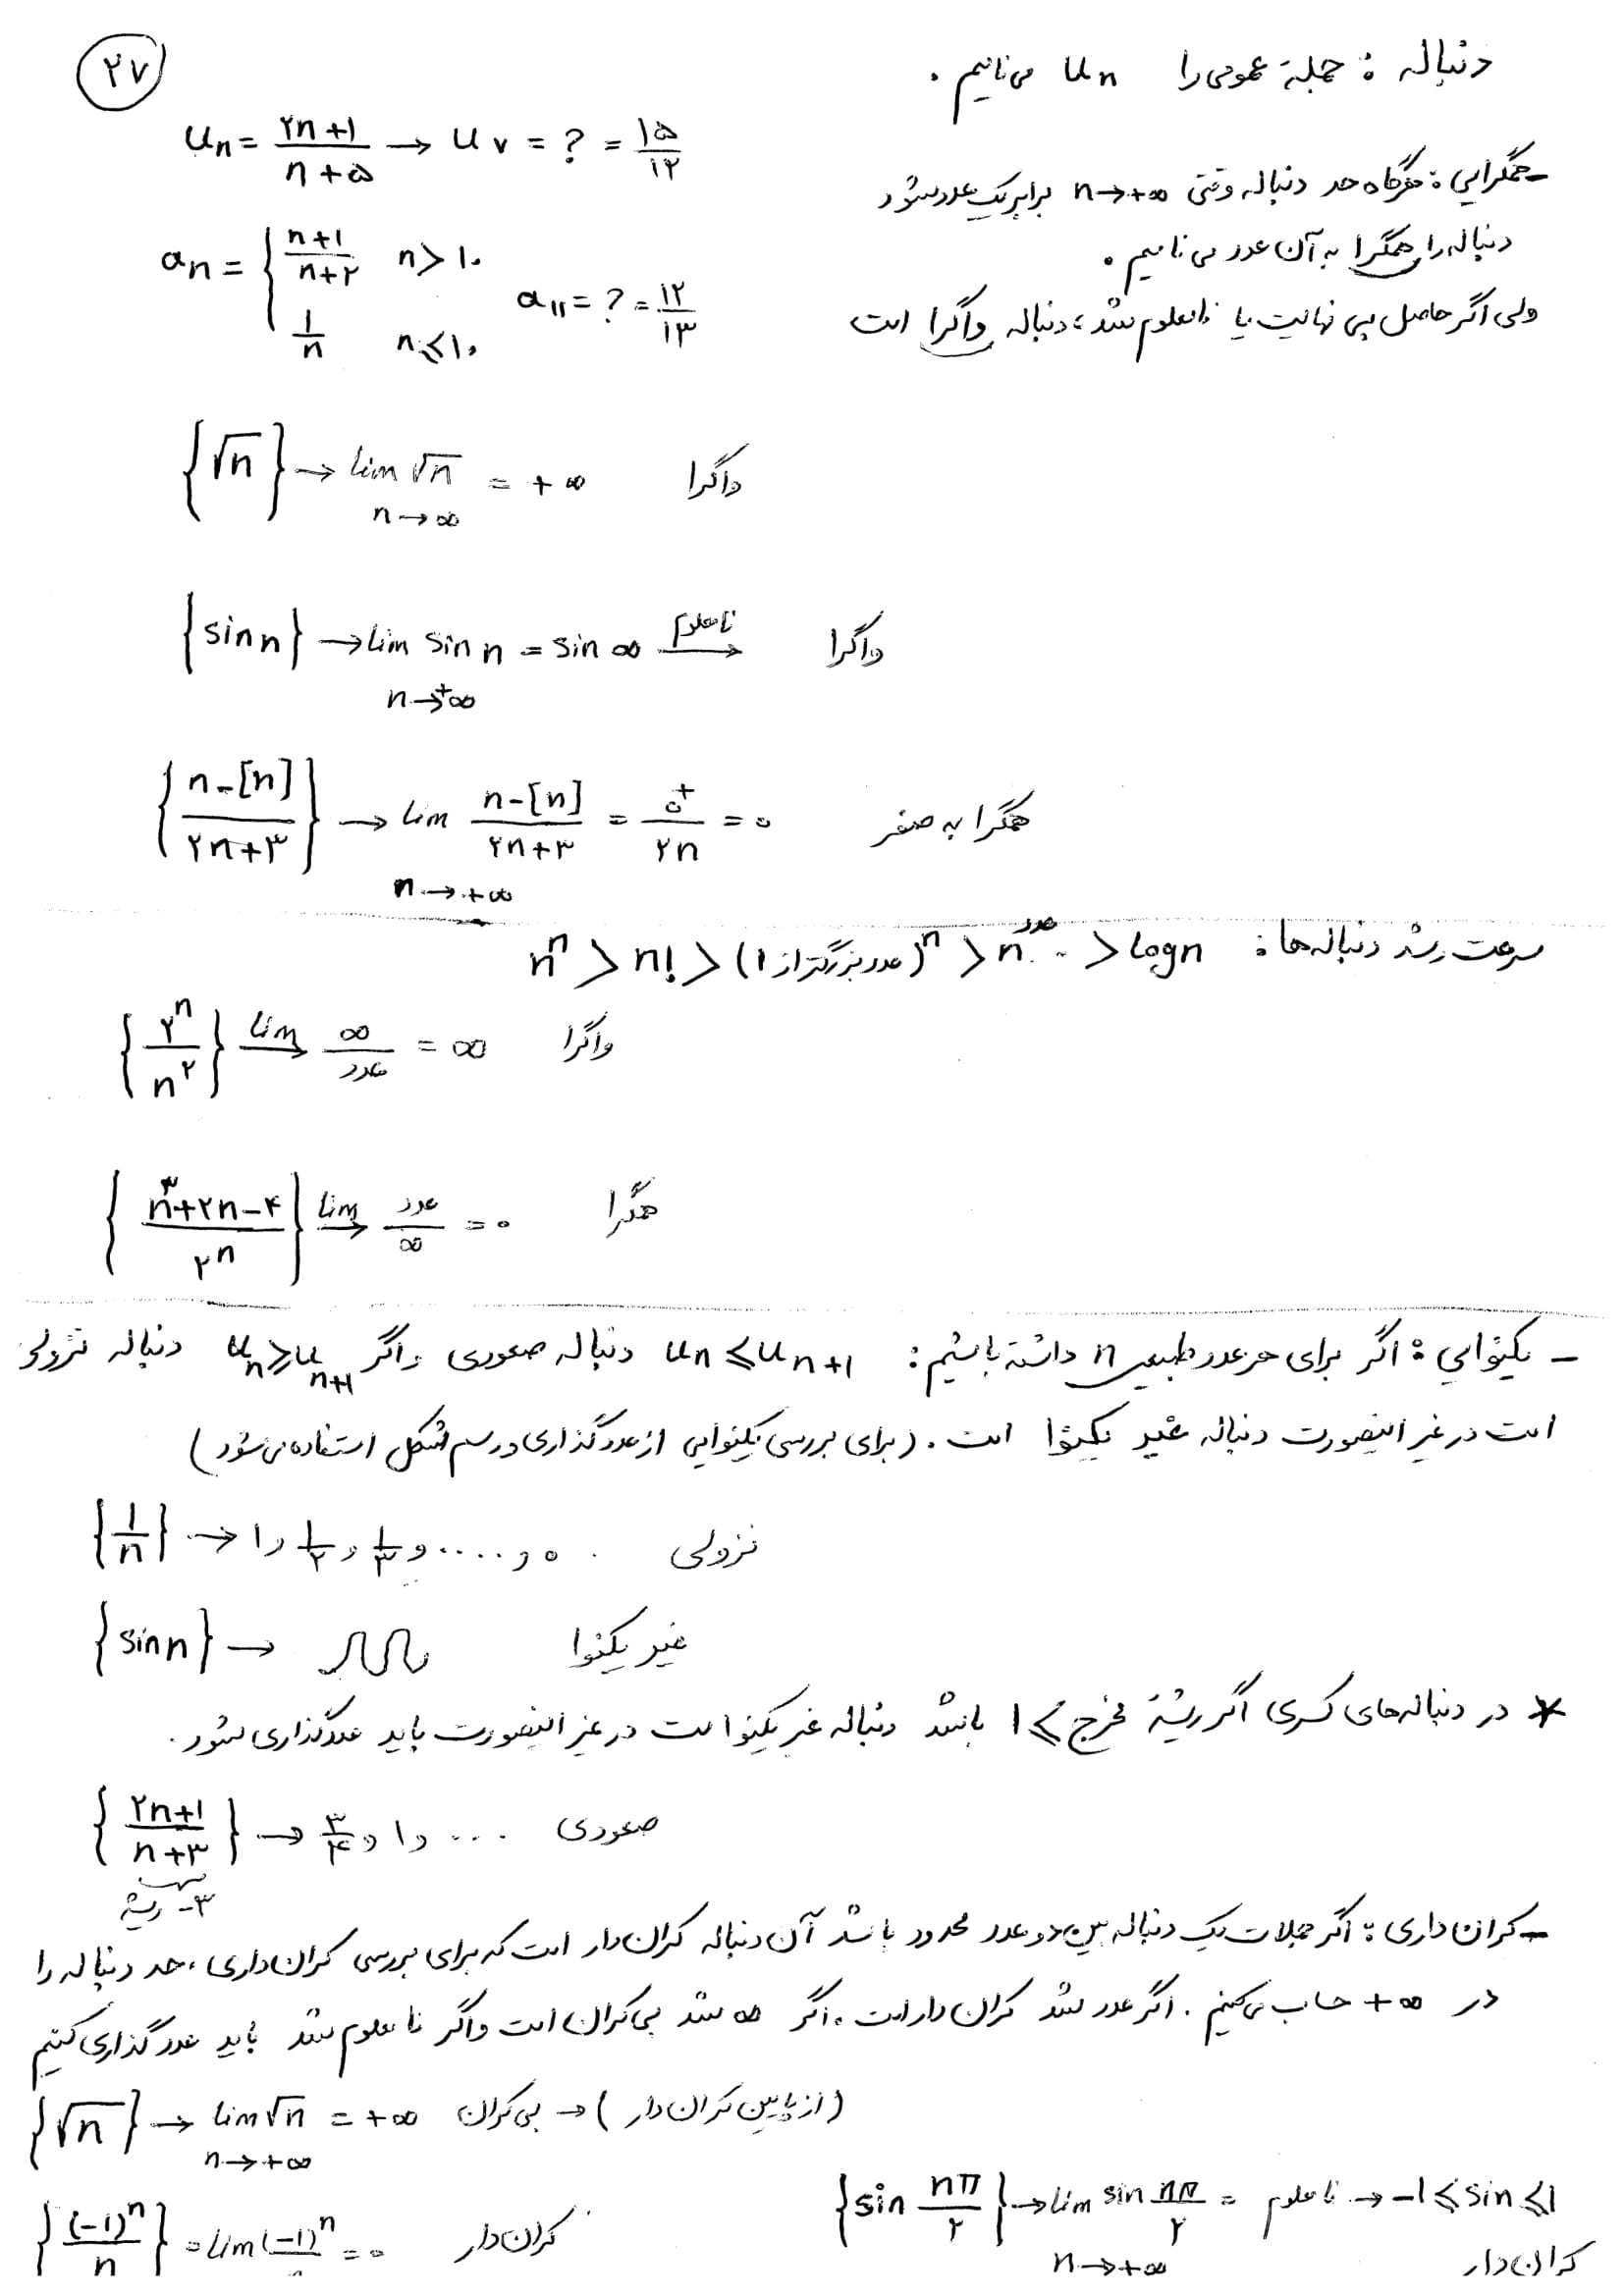 ۲۷
دنباله : جملهٔ عمومی را Un می‌نامیم .
Un = ۲n+۱ / n+۵ → U۷ = ? = ۱۵/۱۲
- همگرایی : هرگاه حد دنباله وقتی n→+∞ برابر یک عدد شود
دنباله را همگرا به آن عدد می‌نامیم .
ولی اگر حاصل بی نهایت یا نامعلوم شد ، دنباله واگرا است
an = { n+۱ / n+۲ n > ۱۰
۱/n n ≤ ۱۰
a۱۱ = ? = ۱۲/۱۳
{√n} → lim √n = +∞ واگرا
n→∞
{sin n} → lim sin n = sin ∞ نامعلوم → واگرا
n→+∞
{n-[n] / ۲n+۳} → lim n-[n] / ۲n+۳ = ۰⁺ / ۲n = ۰ همگرا به صفر
n→+∞
سرعت رشد دنباله‌ها : nⁿ > n! > (عدد بزرگتر از ۱)ⁿ > n^عدد > logn
{۲ⁿ / n²} lim → ∞ / عدد = ∞ واگرا
{n³+۲n-۴ / ۲ⁿ} lim → عدد / ∞ = ۰ همگرا
- یکنوایی : اگر برای هر عدد طبیعی n داشته باشیم : Un ≤ Un+1 دنباله صعودی و اگر Un ≥ Un+1 دنباله نزولی
است در غیر اینصورت دنباله غیر یکنوا است . (برای بررسی یکنوایی از عددگذاری و رسم شکل استفاده می‌شود)
{۱/n} → ۱ , ۱/۲ , ۱/۳ , ..... , ۰ نزولی
{sin n} → غیر یکنوا
* در دنباله‌های کسری اگر ریشهٔ مخرج ≥ ۱ باشد دنباله غیر یکنوا است در غیر اینصورت باید عددگذاری شود .
{۲n+۱ / n+۳} → ۳/۴ , ۱ , ... صعودی
ریشه -۳
- کران داری : اگر جملات یک دنباله بین دو عدد محدود باشد آن دنباله کران‌دار است که برای بررسی کران‌داری ، حد دنباله را
در +∞ حساب می‌کنیم . اگر عدد شد کران دار است ، اگر ∞ شد بی‌کران است و اگر نامعلوم شد باید عددگذاری کنیم
{√n} → lim √n = +∞ بی‌کران → (از پایین کران‌دار)
n→+∞
{sin nπ/۲} → lim sin nπ/۲ = نامعلوم → -۱ ≤ sin ≤ ۱
n→+∞ کران‌دار
{(-۱)ⁿ / n} = lim (-۱)ⁿ = ۰ کران‌دار